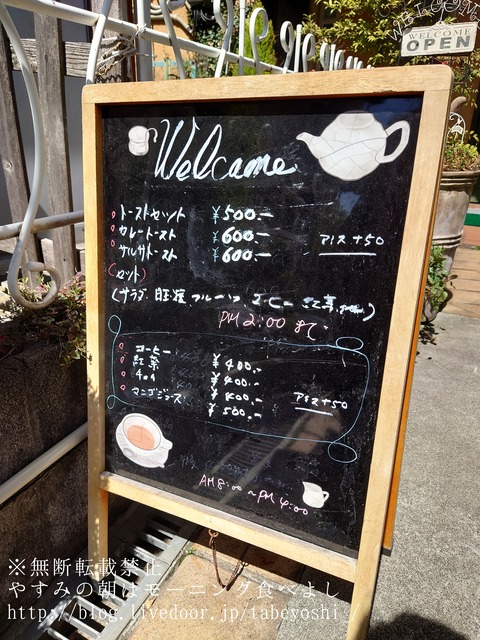 WELCOME
WELCOME
OPEN
Welcome
トーストセット ¥500.-
カレートースト ¥600.-
サルサトースト ¥600.- アイス+50
(セット)
(サラダ. 目玉 フルーツ
PM 2:00 まで
コーヒー ¥400.-
紅茶 ¥400.-
チャイ ¥400.-
マンゴジュース ¥500.- アイス+50
AM 8:00 ~ PM 4:00
※無断転載禁止
やすみの朝はモーニング食べよし
http://blog.livedoor.jp/tabeyoshi